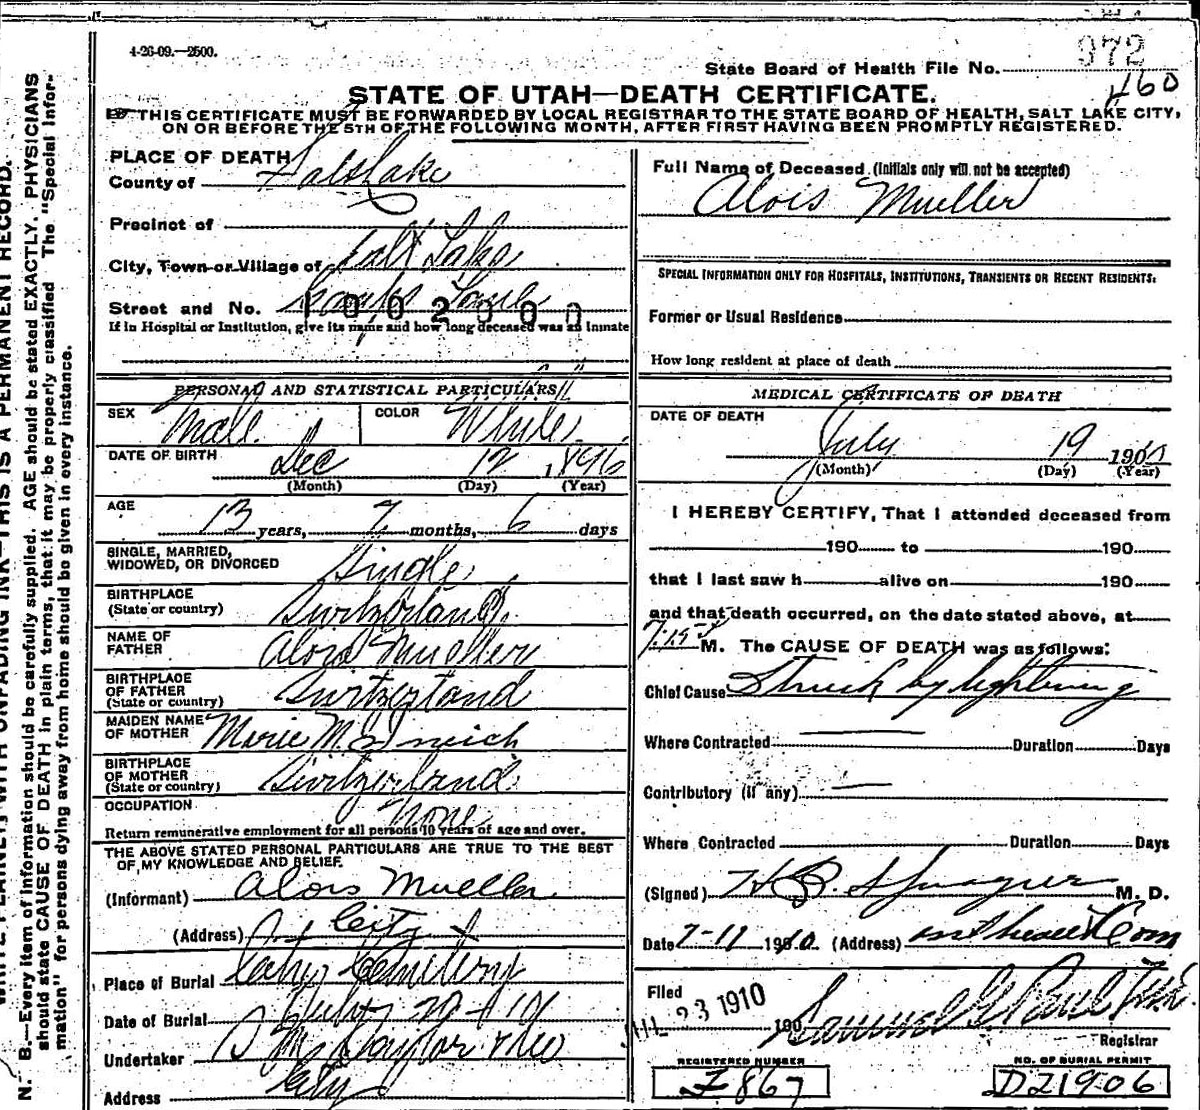 4-26-09.—2500.
State Board of Health File No. 972
460
STATE OF UTAH—DEATH CERTIFICATE.
THIS CERTIFICATE MUST BE FORWARDED BY LOCAL REGISTRAR TO THE STATE BOARD OF HEALTH, SALT LAKE CITY,
ON OR BEFORE THE 5TH OF THE FOLLOWING MONTH, AFTER FIRST HAVING BEEN PROMPTLY REGISTERED.
PLACE OF DEATH
County of Salt Lake
Precinct of
City, Town or Village of Salt Lake
Street and No.
1002000
If in Hospital or Institution, give its name and how long deceased was an inmate
PERSONAL AND STATISTICAL PARTICULARS
SEX Male COLOR White
DATE OF BIRTH Dec 12, 1896
(Month) (Day) (Year)
AGE
13 years, 7 months, 6 days
SINGLE, MARRIED,
WIDOWED, OR DIVORCED Single
BIRTHPLACE
(State or country) Switzerland
NAME OF
FATHER Alois Mueller
BIRTHPLACE
OF FATHER
(State or country) Switzerland
MAIDEN NAME
OF MOTHER Marie
BIRTHPLACE
OF MOTHER
(State or country) Switzerland
OCCUPATION None
Return remunerative employment for all persons 10 years of age and over.
THE ABOVE STATED PERSONAL PARTICULARS ARE TRUE TO THE BEST
OF MY KNOWLEDGE AND BELIEF.
(Informant) Alois Mueller
(Address) City
Place of Burial City Cemetery
Date of Burial July
Undertaker S M Taylor & Co
Address City
Full Name of Deceased (Initials only will not be accepted)
Alois Mueller
SPECIAL INFORMATION ONLY FOR HOSPITALS, INSTITUTIONS, TRANSIENTS OR RECENT RESIDENTS:
Former or Usual Residence
How long resident at place of death
MEDICAL CERTIFICATE OF DEATH
DATE OF DEATH
July 19 190
(Month) (Day) (Year)
I HEREBY CERTIFY, That I attended deceased from
190 to 190
that I last saw h alive on 190
and that death occurred, on the date stated above, at
7:15 M. The CAUSE OF DEATH was as follows:
Chief Cause Struck by lightning
Where Contracted Duration Days
Contributory (if any)
Where Contracted Duration Days
(Signed) M. D.
Date (Address)
Filed
JUL 23 1910 190
Registrar
REGISTERED NUMBER
I 867
NO. OF BURIAL PERMIT
D21906
N. B.—Every item of information should be carefully supplied. AGE should be stated EXACTLY. PHYSICIANS
should state CAUSE OF DEATH in plain terms, that it may be properly classified The "Special Infor-
mation" for persons dying away from home should be given in every instance.